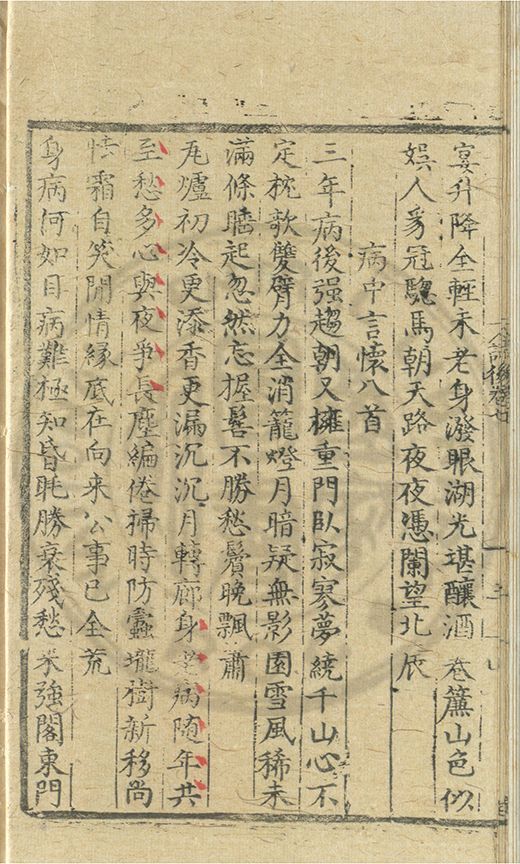 宴升降全輕未老身潑眼湖光堪釀酒卷簾山色似
娛人豸冠驄馬朝天路夜夜憑闌望北辰
病中言懷八首
三年病後强趨朝又擁重門臥寂寥夢繞千山心不
定梡歌雙臂力全消籠燈月暗疑無影園雪風稀未
滿條曉起忽然忘握髻不勝愁鬢晚飄蕭
瓦爐初冷更添香更漏沉沉月轉廊身與病随年共
至愁多心與夜爭長塵編倦掃時防蠹壠樹新移尚
怯霜自笑閒情緣底在向來公事已全荒
身病何如目病難極知昏眊勝衰殘愁来強閣東門